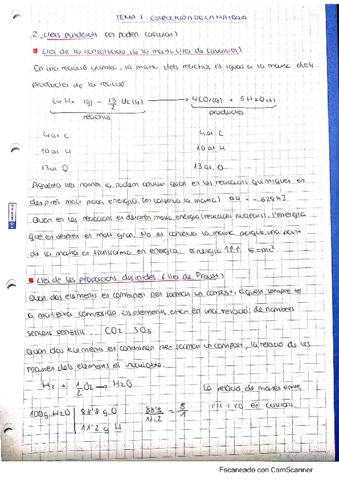 TEMA 1. ESTRUCTURA DE LA MATÈRIA
2. Lleis ponderals (es poden calcular)
Llei de la conservació de la massa (llei de Lavoisier)
En una reacció química, la massa dels reactius és igual a la massa dels
productes de la reacció.
C4H10 (g) + 13/2 O2(g) → 4CO2(g) + 5H2O(g)
reactius productes
4 at. C 4 at. C
10 at. H 10 at. H
13 at. O 13 at. O
Aquesta llei només la podem aplicar quan en les reaccions químiques, es
desprèn molt poca energia. (es conserva la massa)
Quan en les reaccions es desprèn molta energia (reaccions nuclears), l'energia
que es desprèn és molt gran. No es conserva la massa perquè una part
de la massa es transforma en energia. E=mc²
Llei de les proporcions definides (llei de Proust)
Quan dos elements es combinen per formar un compost, aquest sempre té
la mateixa composició. Els elements estan en una relació de nombres
sencers senzills. CO2 SO3
Quan dos elements es combinen per formar un compost, la relació de les
masses dels elements és invariable.
H2 + 1/2 O2 → H2O La relació de masses entre
l'H i l'O és constant.
100g H2O 88'8 g O 88'8/11'2 = 8/1
11'2 g H
Escaneado con CamScanner